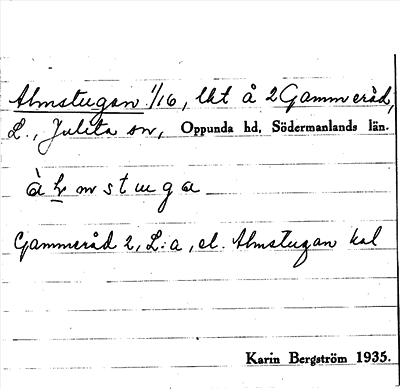 Almstugan 1/16, lht å 2 Gammeråd,
L., Julita sn, Oppunda hd, Södermanlands län.
àl̲mstuga
Gammeråd 2, L:a, el. Almstugan kal
Karin Bergström 1935.